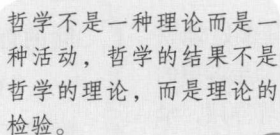 哲学不是一种理论而是一
种活动，哲学的结果不是
哲学的理论，而是理论的
检验。